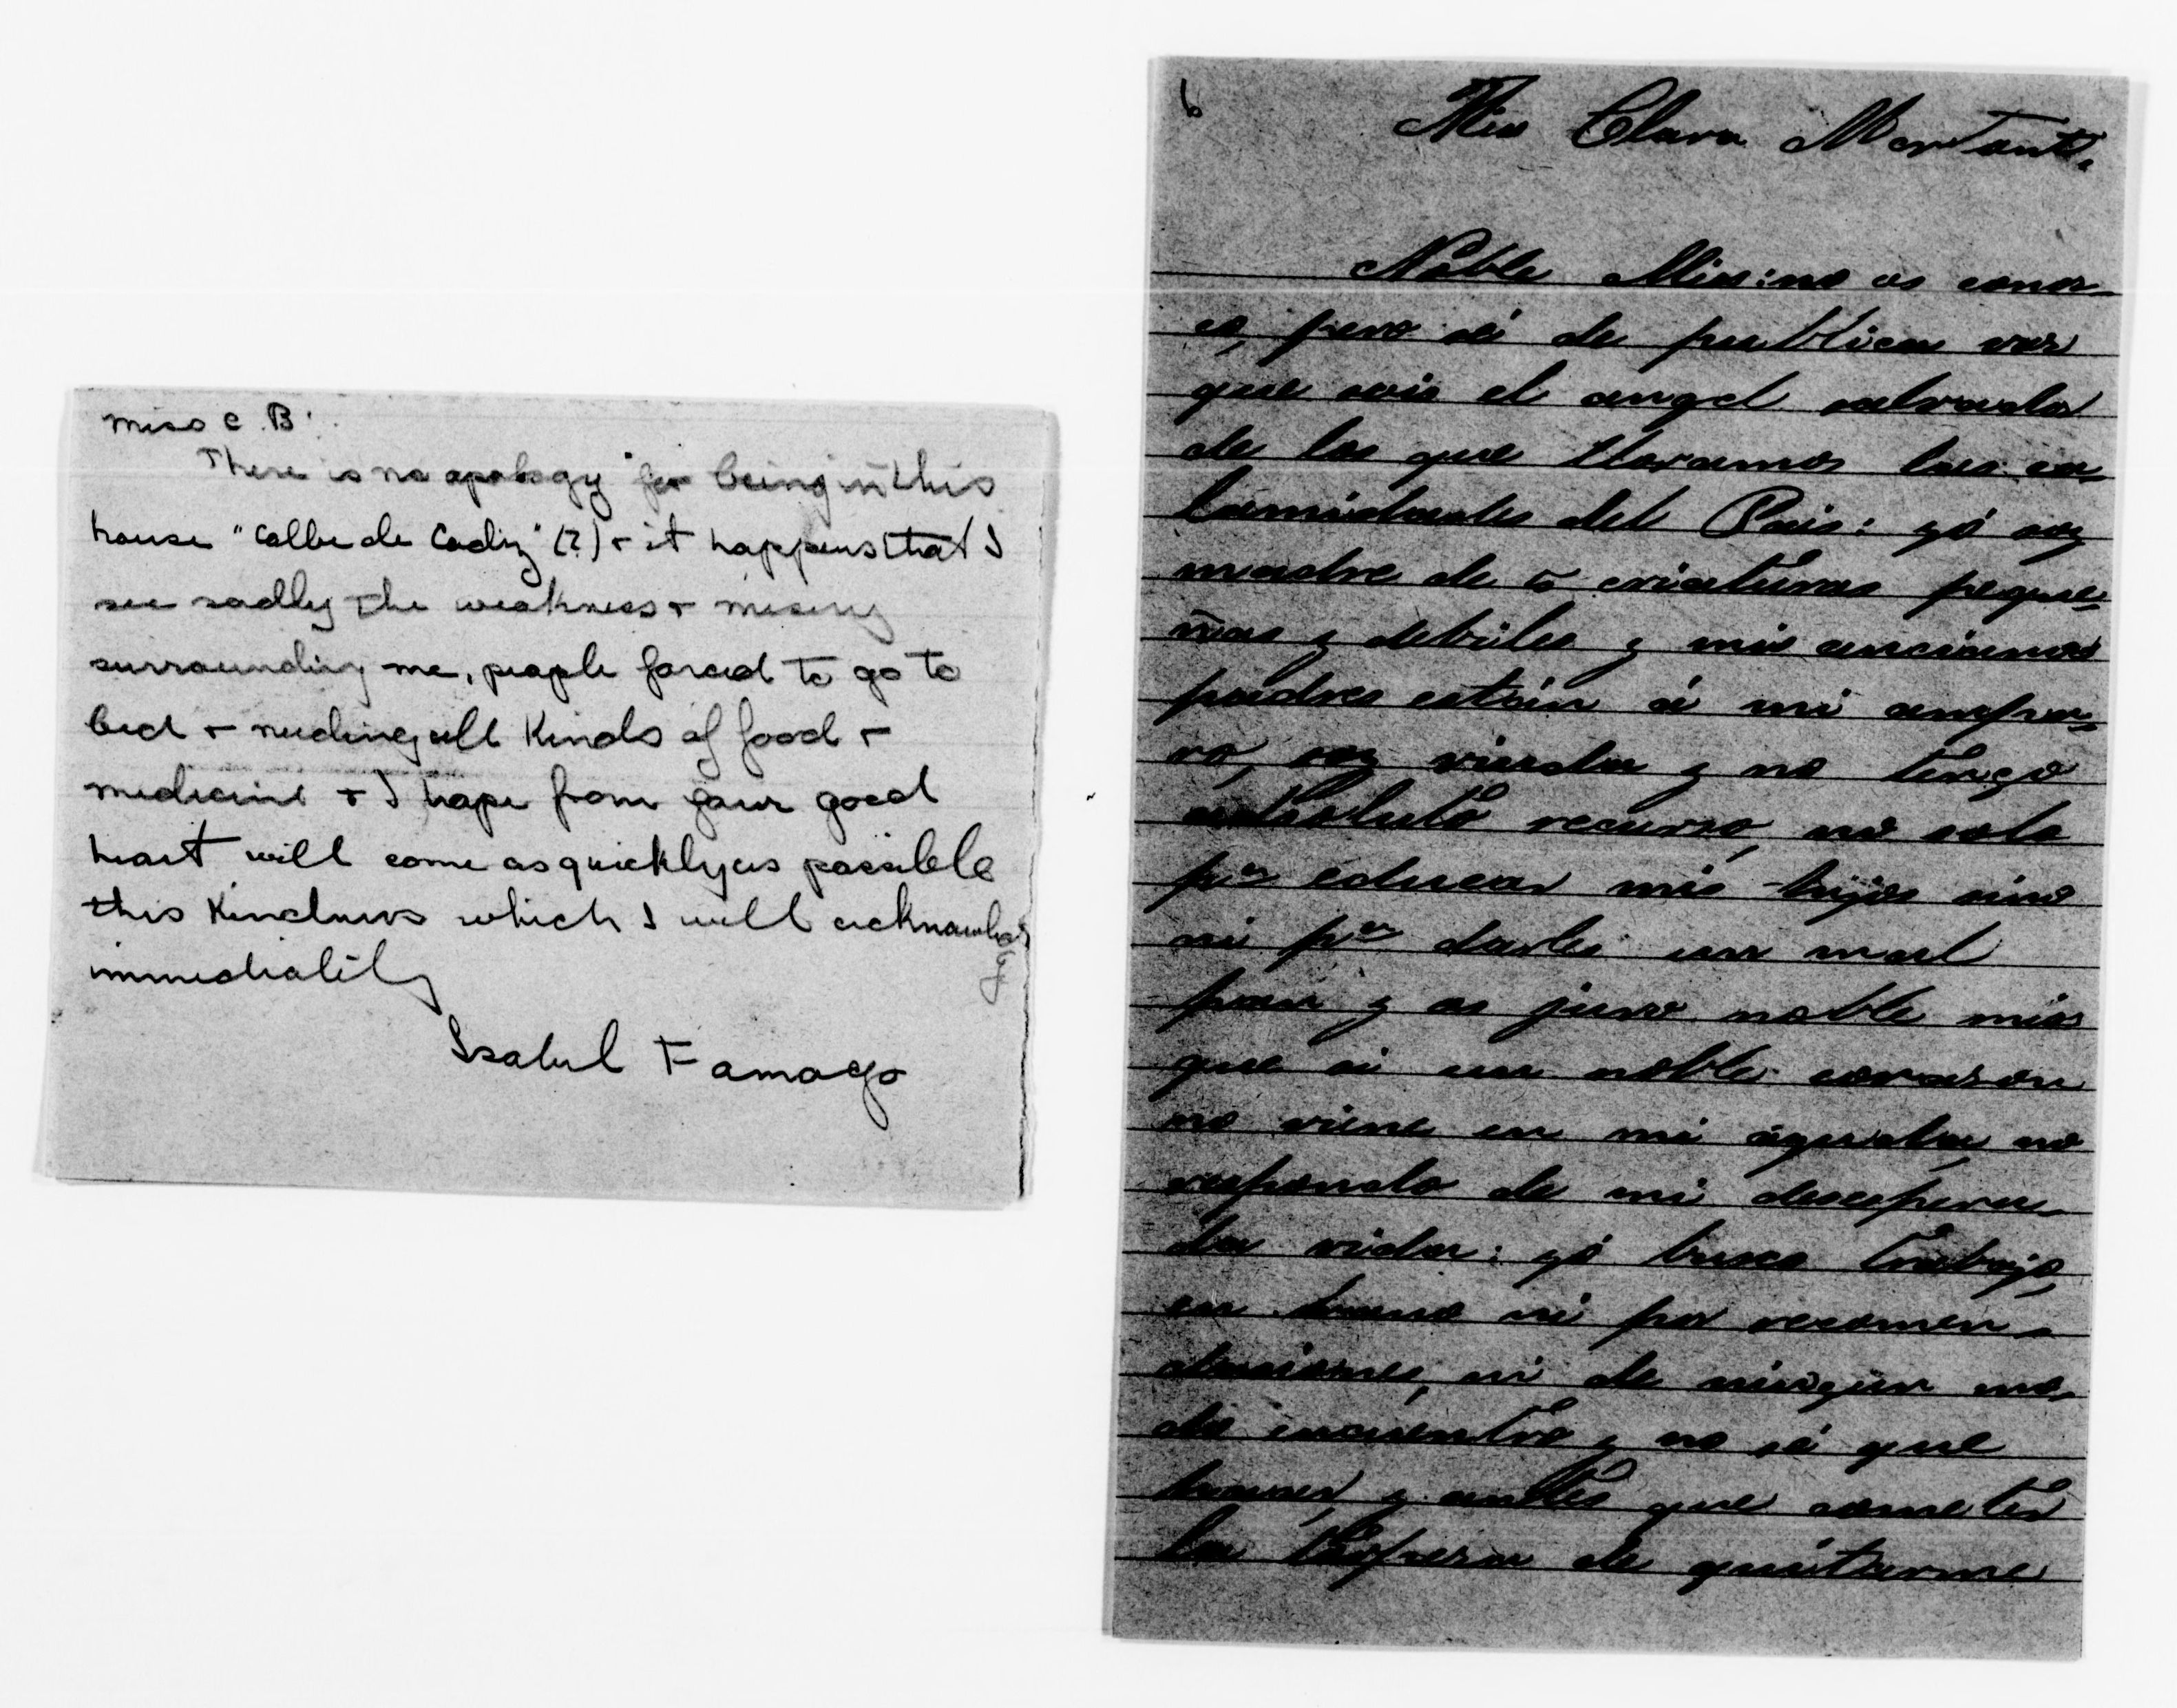 Miss C. B:
There is no apology for being in this
house "Calle de Cadiz" (?) + it happens that I
see sadly the weakness + misery
surrounding me, people forced to go to
bed + needing all kinds of food +
medicine + I hope from your good
heart will come as quickly as possible
this kindness which I will acknowledge
immediately
Isabel Famago
Miss Clara
Noble Miss: no os conos-
co, pero sé de publica voz
que sois el angel salvador
de los que lloramos las ca-
lamidades del Pais: yó soy
madre de 5 criaturas peque-
ñas y debiles y mis ancianos
padres están á mi ampa-
ro, soy viuda y no tengo
absoluto recurso, no solo
pa educar mis hijos sino
ni pa darles un mal
pan y os juro noble miss
que si un noble corason
no viene en mi ayuda, no
respondo de mi desespera-
da vida: yó busco trabajo,
ni por recomen-
dasiones, ni de ningun mo-
do encuentro y no sé que
hacer, y antes que cometer
la de quitarme